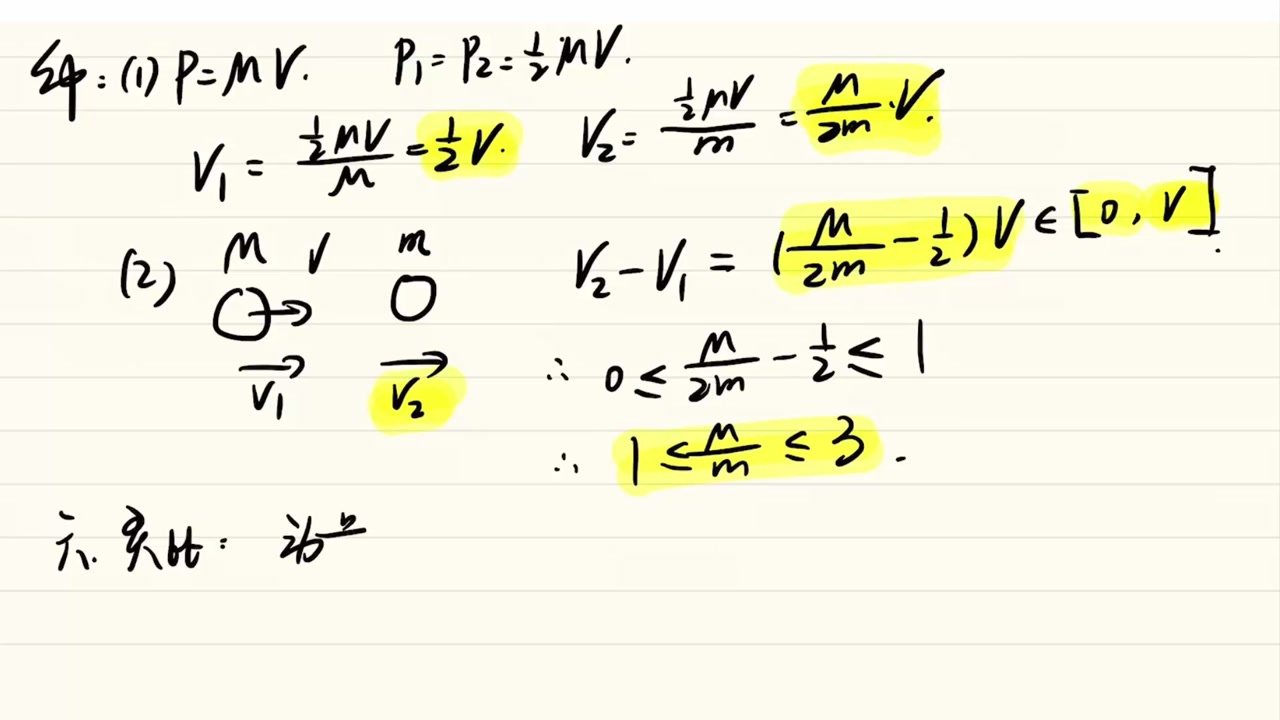 解：(1) P = MV. P₁ = P₂ = ½MV.
V₁ = ½MV/M = ½V. V₂ = ½MV/m = M/2m · V.
(2) M V m V₂ - V₁ = (M/2m - ½)V ∈ [0, V].
V₁ V₂ ∴ 0 ≤ M/2m - ½ ≤ 1
∴ 1 ≤ M/m ≤ 3.
六. 实验：动